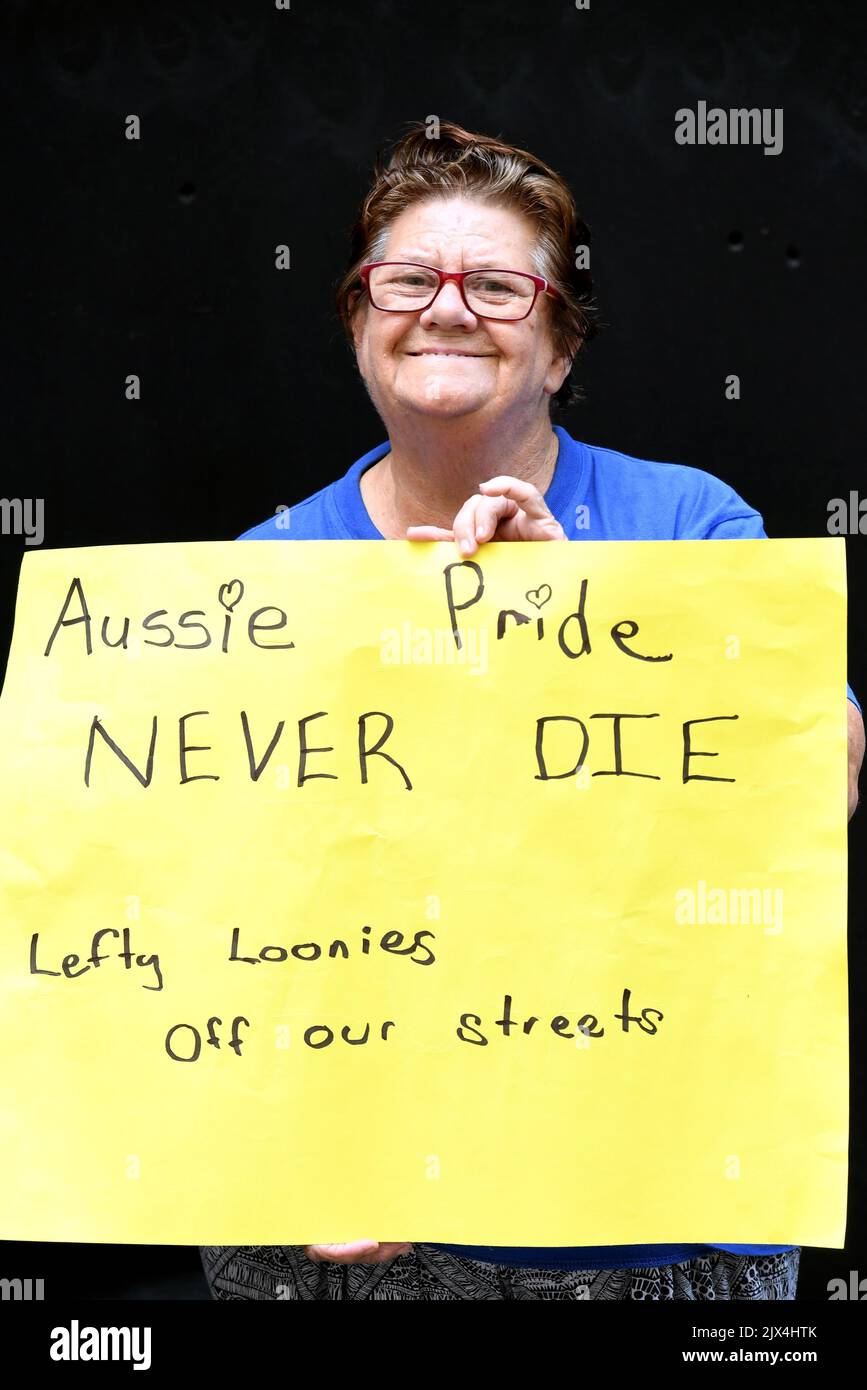 Aussie Pride
NEVER DIE
Lefty Loonies
Off our streets
alamy
a
alamy
Image ID: 2JX4HTK
www.alamy.com